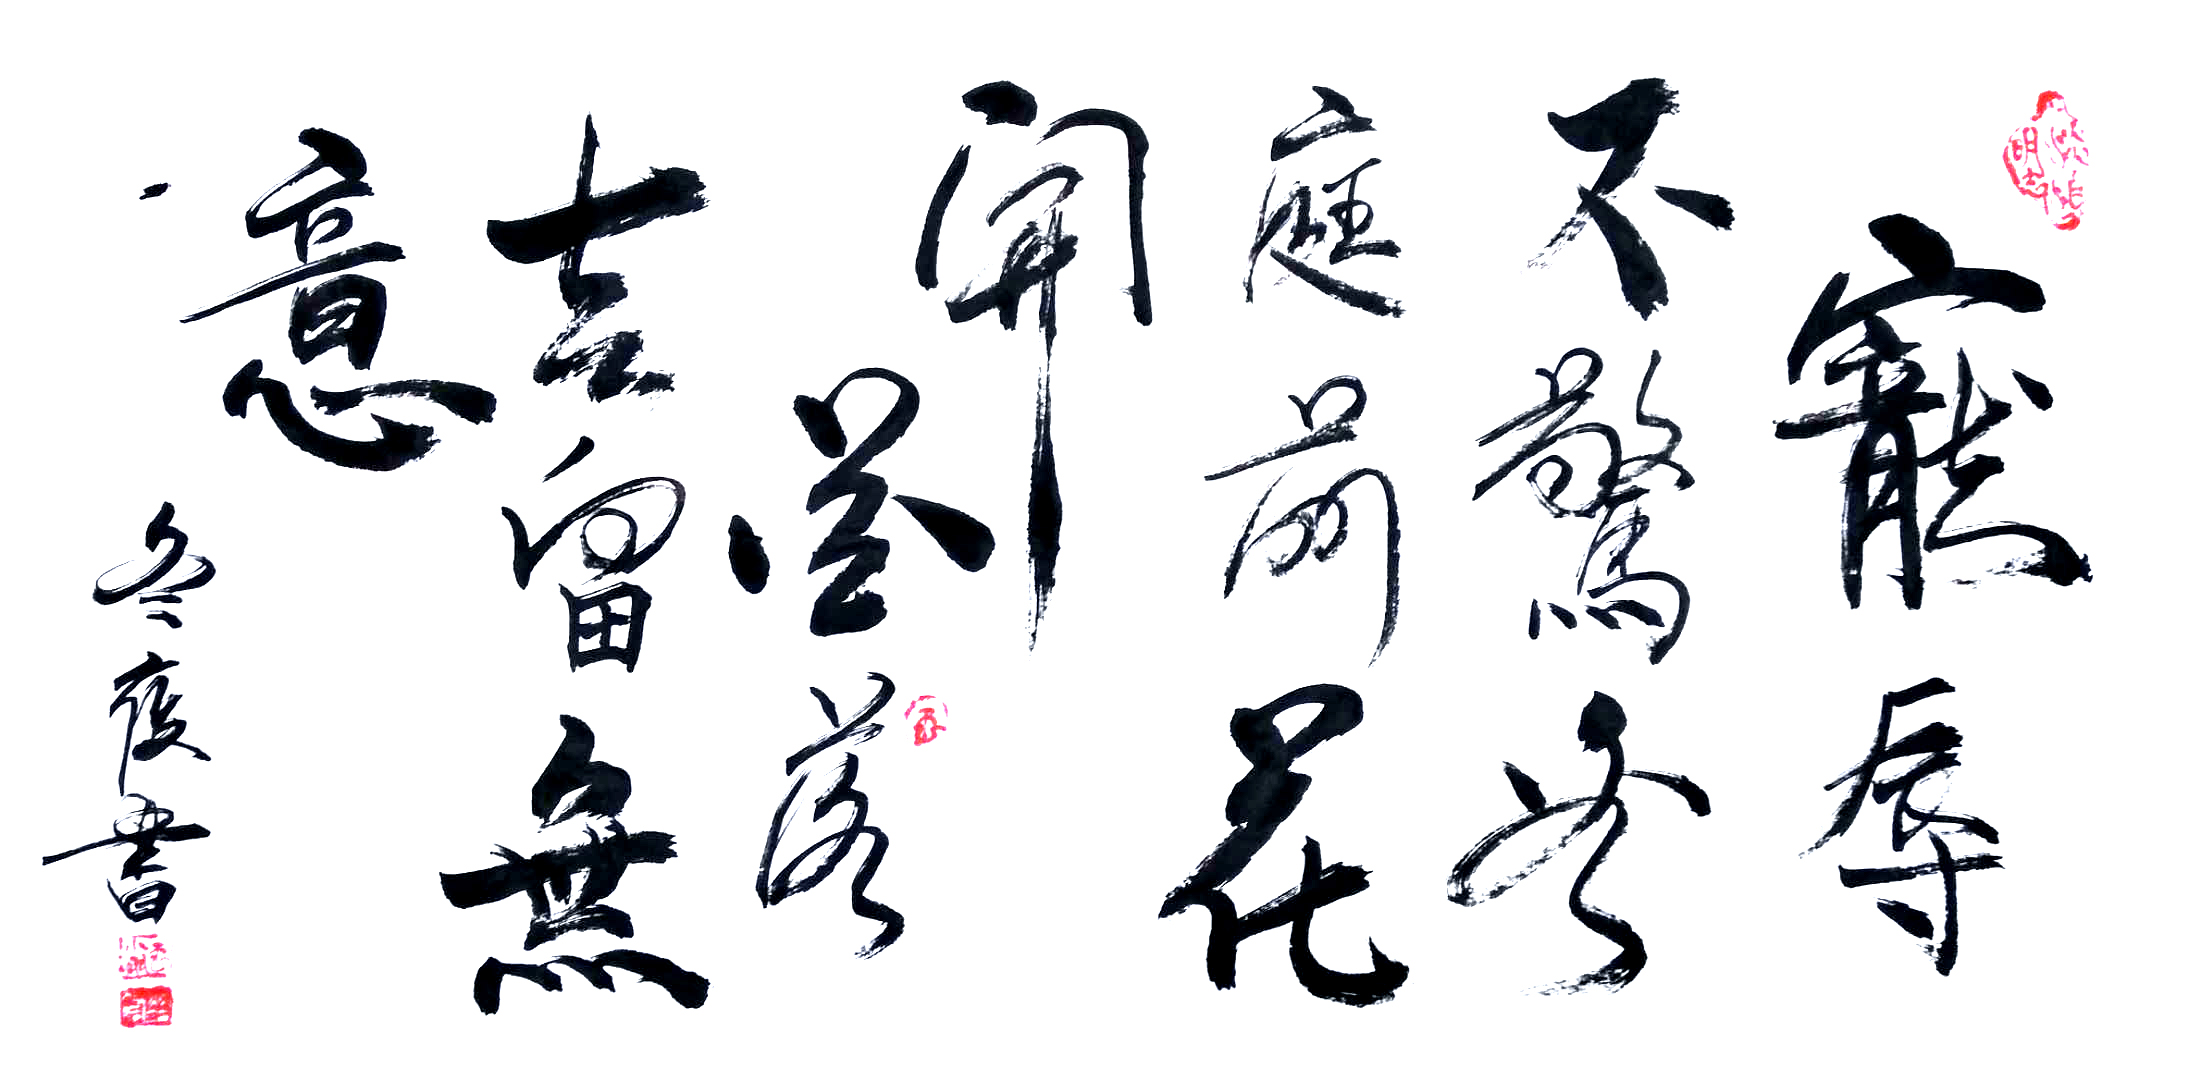 淡泊明志
寵辱
不驚看
庭前花
開
花落
去留無
意
冬夜書